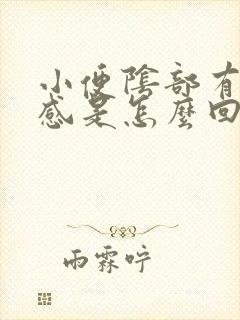 小便陰部有
感是怎麼回
雨霖咛